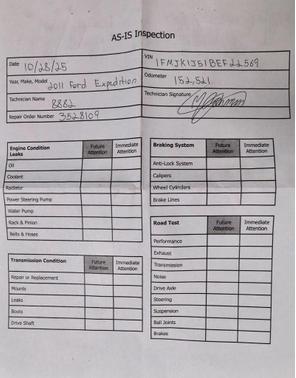 AS-IS Inspection
Date 10/28/25
VIN 1FMJK1J51BEF22569
Year, Make, Model 2011 Ford Expedition
Odometer 152,521
Technician Name 8882
Technician Signature
Repair Order Number 3528109
Engine Condition Future Attention Immediate Attention
Leaks
Oil
Coolant
Radiator
Power Steering Pump
Water Pump
Rack & Pinion
Belts & Hoses
Braking System Future Attention Immediate Attention
Anti-Lock System
Calipers
Wheel Cylinders
Brake Lines
Road Test Future Attention Immediate Attention
Performance
Exhaust
Transmission
Noise
Drive Axle
Steering
Suspension
Ball Joints
Brakes
Transmission Condition Future Attention Immediate Attention
Repair or Replacement
Mounts
Leaks
Boots
Drive Shaft